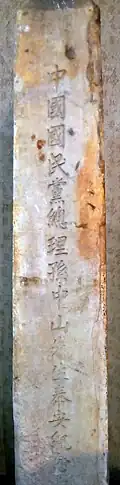 中國國民黨總理孫中山先生奉安紀念